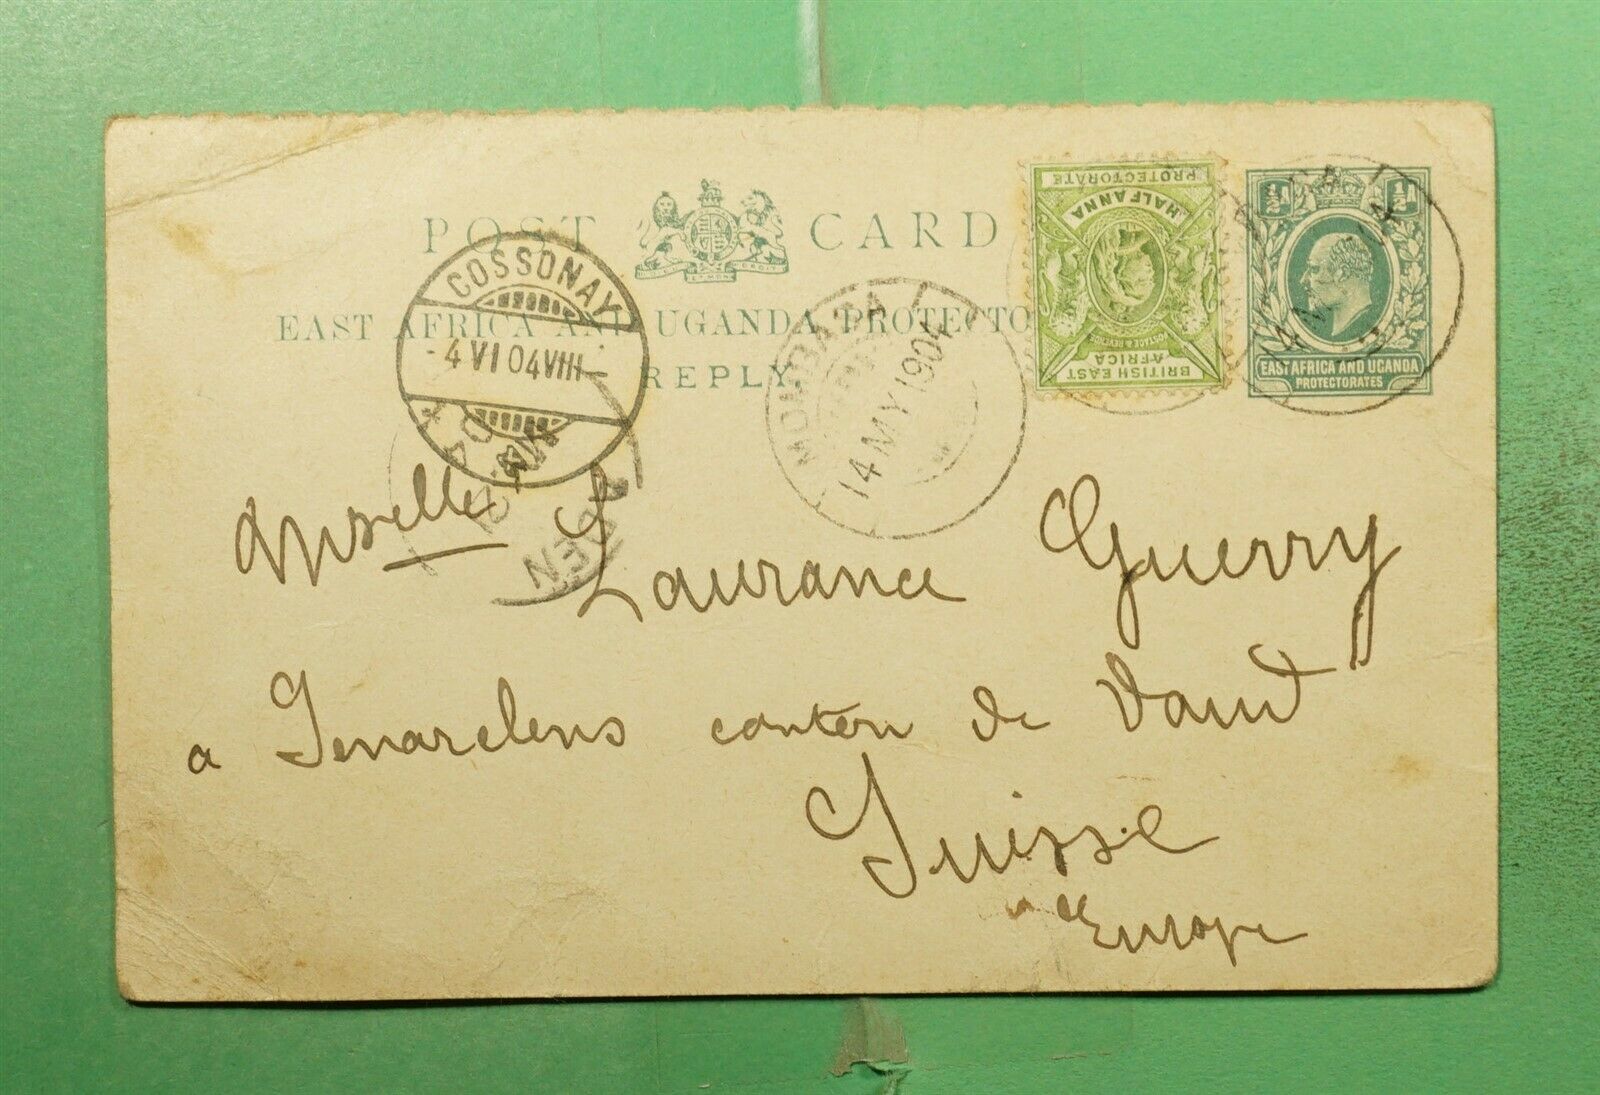 POST CARD
EAST AFRICA AND UGANDA PROTECTO
REPLY.
PROTECTORATE
HALF ANNA
POSTAGE & REVENUE
BRITISH EAST
AFRICA
½A ½A
EAST AFRICA AND UGANDA
PROTECTORATES
COSSONAY
-4 VI 04 VIII-
MOMBASA
14 MY 1904
ADEN
Mselle Laurance Guerry
a Senarclens canton de Vaud
Suisse
Europe